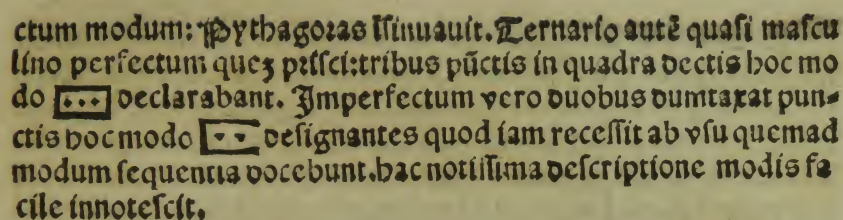 ctum modum: Pythagoꝛas Iſinuauit. Ternario autē quaſi maſcu
lino perfectum queꝫ pꝛiſci: tribus pūctis in quadra dectis hoc mo
do [...] declarabant. Imperfectum vero duobus dumtaxat pun⸗
ctis hoc modo [..] deſignantes quod iam receſſit ab vſu quemad
modum ſequentia docebunt. hac notiſſima deſcriptione modis fa
cile innoteſcit.